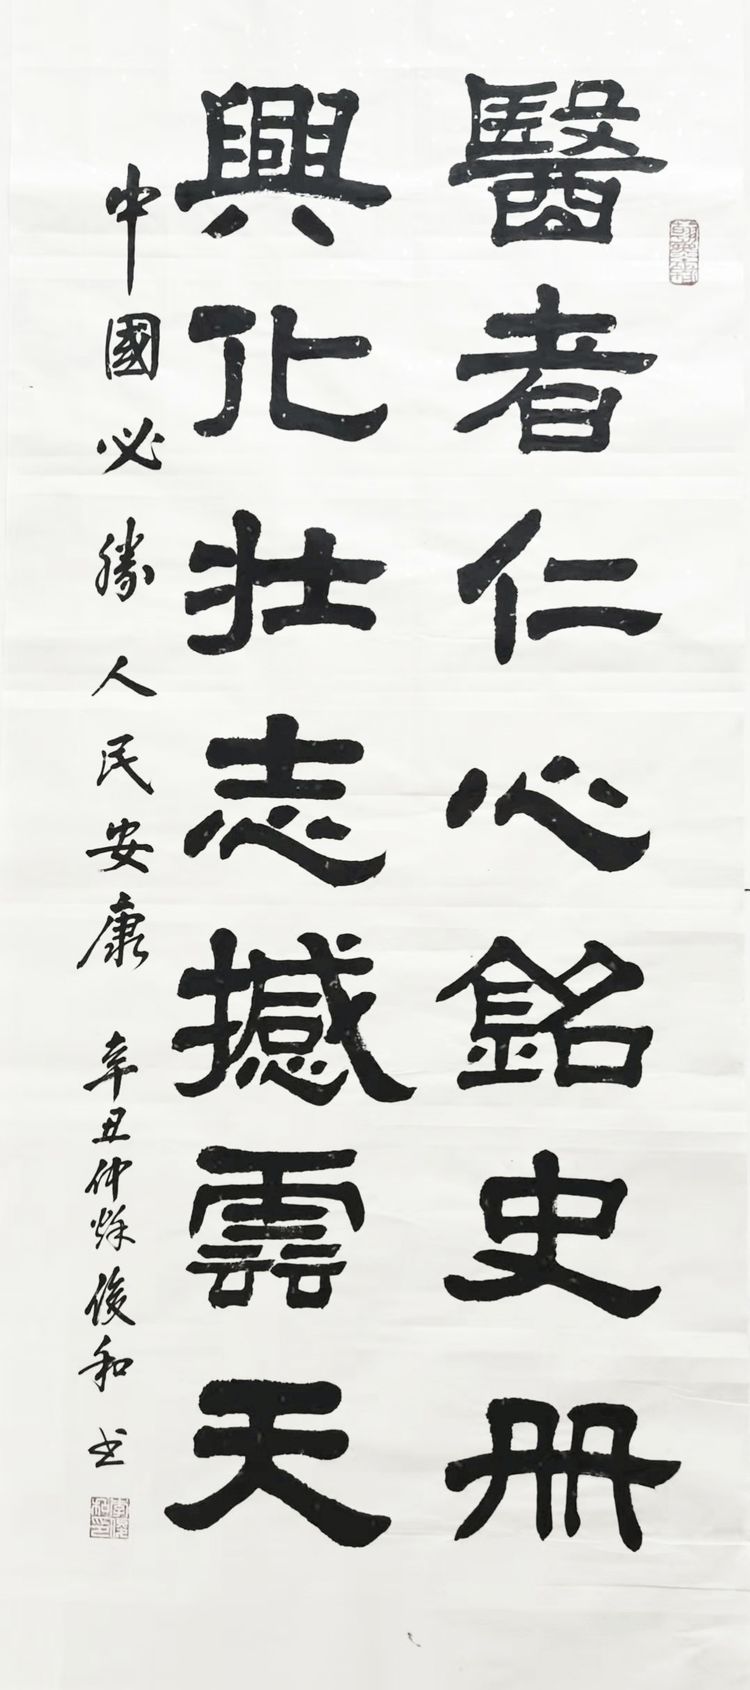 醫者仁心銘史册
興化壯志撼雲天
中國必勝人民安康 辛丑仲秌俊和书